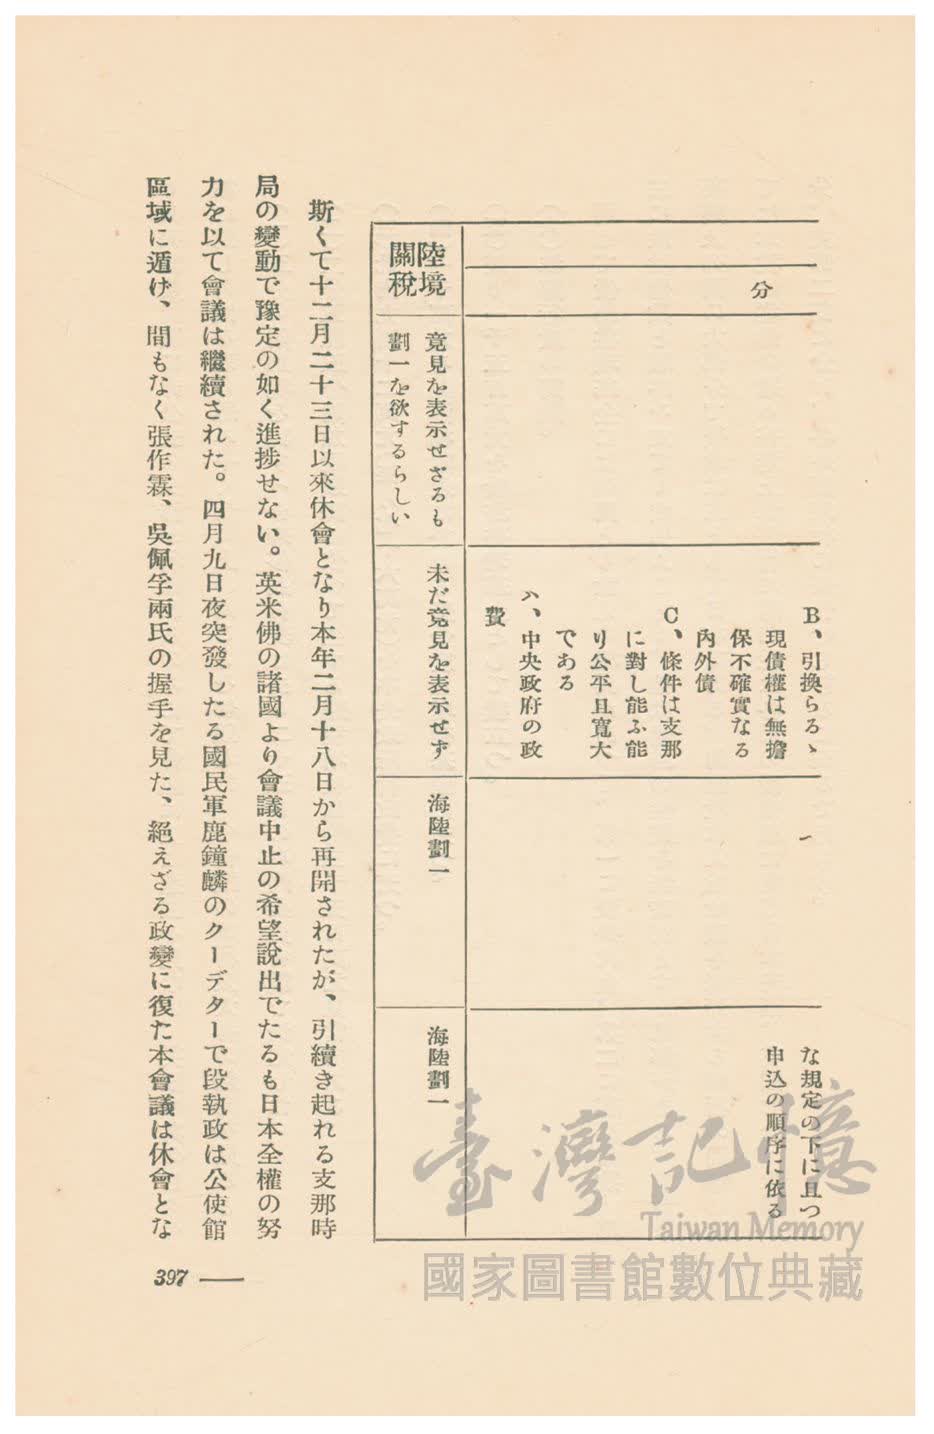 分
B、引換らるゝ
現債權は無擔
保不確實なる
內外債
C、條件は支那
に對し能ふ能
り公平且寬大
である
ハ、中央政府の政
費
な規定の下に且つ
申込の順序に依る
陸境
關稅
竟見を表示せざるも
劃一を欲するらしい
未だ竟見を表示せず
海陸劃一
海陸劃一
斯くて十二月二十三日以來休會となり本年二月十八日から再開されたが、引續き起れる支那時
局の變動で豫定の如く進捗せない。英米佛の諸國より會議中止の希望說出でたるも日本全權の努
力を以て會議は繼續された。四月九日夜突發したる國民軍鹿鐘麟のクーデターで段執政は公使館
區域に遁け、間もなく張作霖、吳佩孚兩氏の握手を見た、絕えざる政變に復た本會議は休會とな
397
臺灣記憶
Taiwan Memory
國家圖書館數位典藏